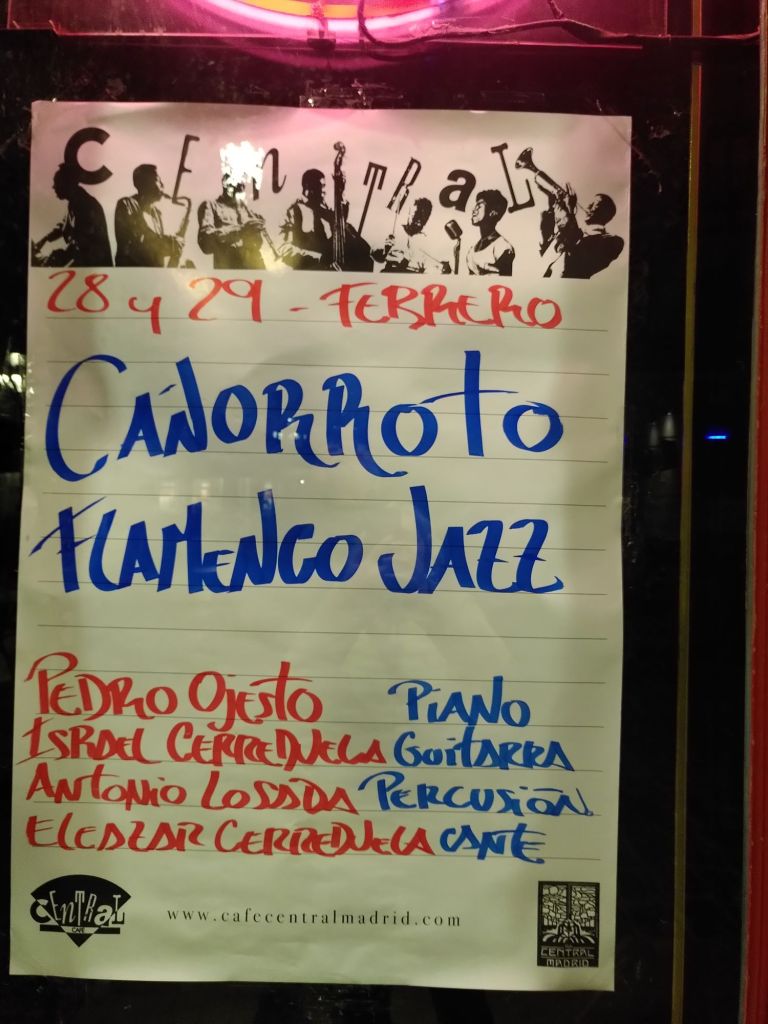 CENTRaL
28 y 29 - FEBRERO
CAÑORROTO
FLAMENCO JAZZ
PEDRO OJESTO PIANO
ISRAEL CERREDUELA GUITARRA
ANTONIO LOSADA PERCUSIÓN
ELEAZAR CERREDUELA CANTE
CENTRaL
CAFE
www.cafecentralmadrid.com
CENTRAL
MADRID